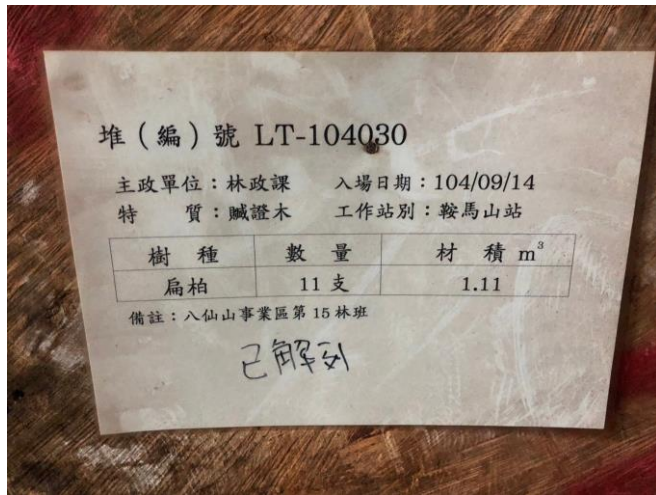 堆（編）號 LT-104030
主政單位：林政課 入場日期：104/09/14
特 質：贓證木 工作站別：鞍馬山站
樹 種 數 量 材 積 m³
扁柏 11 支 1.11
備註：八仙山事業區第 15 林班
已解列